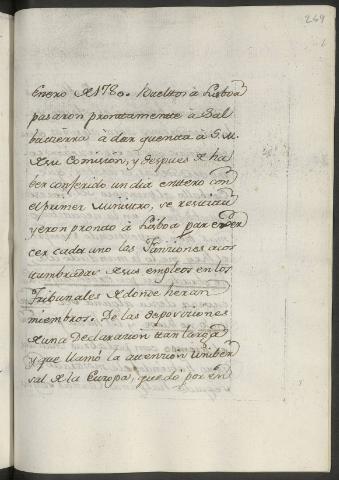 269
Enero de 1780. Vueltos à Lisboa
pasaron prontamente à Sal
batierra à dar quenta à S. M.
de su Comision, y despues de ha
ber conferido un dia entero con
el primer Ministro, se restitu
yeron pronto à Lisboa par exer
cer cada uno las Funciones acos
tumbradas de sus empleos en los
Tribunales de donde heran
miembros. De las deposiciones
de una Declaracion tan larga
y que llamó la atencion Univer
sal de la Europa, quedo por en